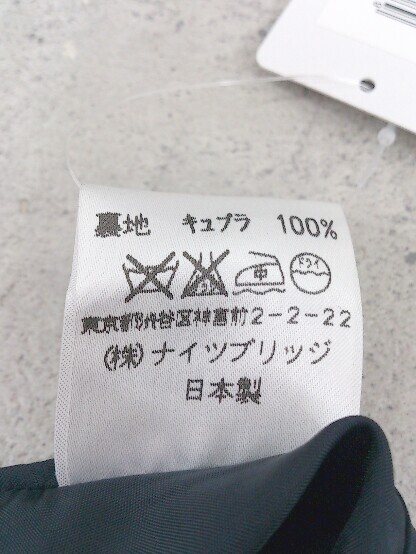 裏地 キュプラ 100%
中 ドライ
東京都渋谷区神宮前2-2-22
(株)ナイツブリッジ
日本製